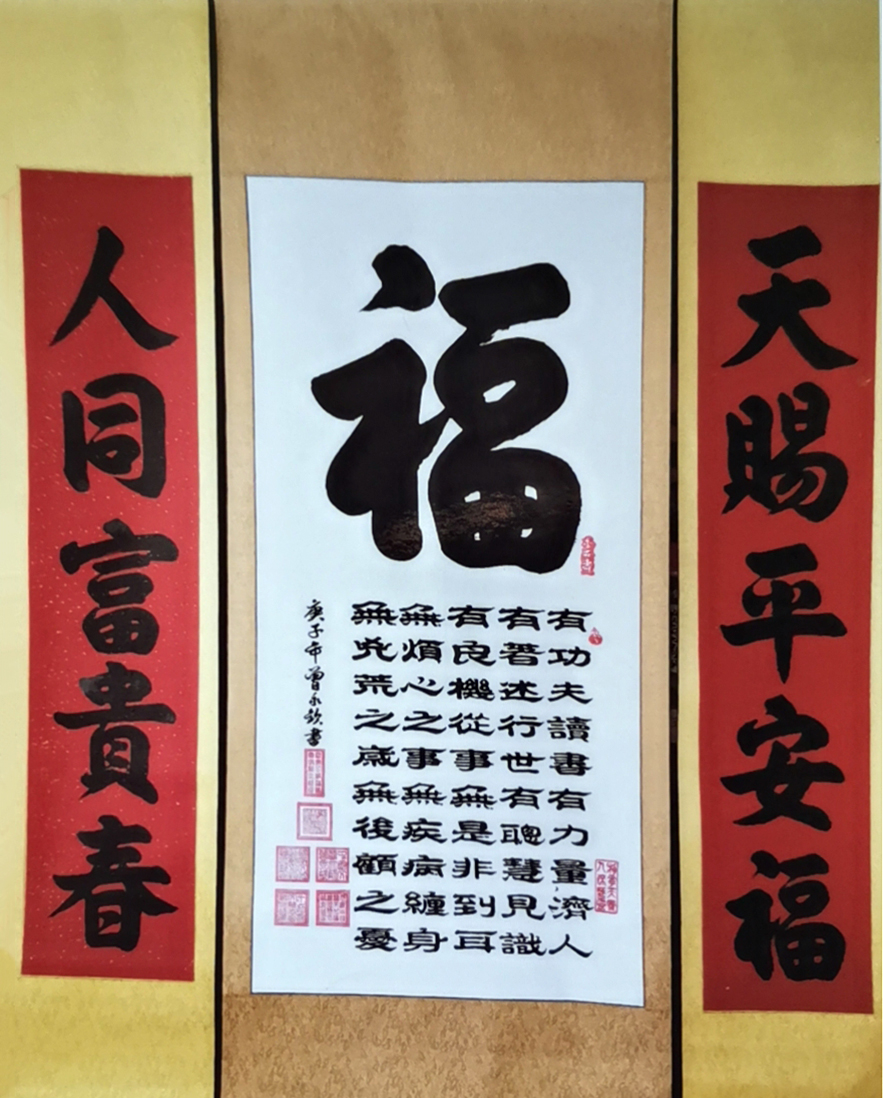 天賜平安福
福
有功夫讀書有力量濟人
有著述行世有聰慧見識
有良機從事無是非到耳
無煩心之事無疾病纏身
無兇荒之歲無後顧之憂
庚子年曾永欽書
人同富貴春